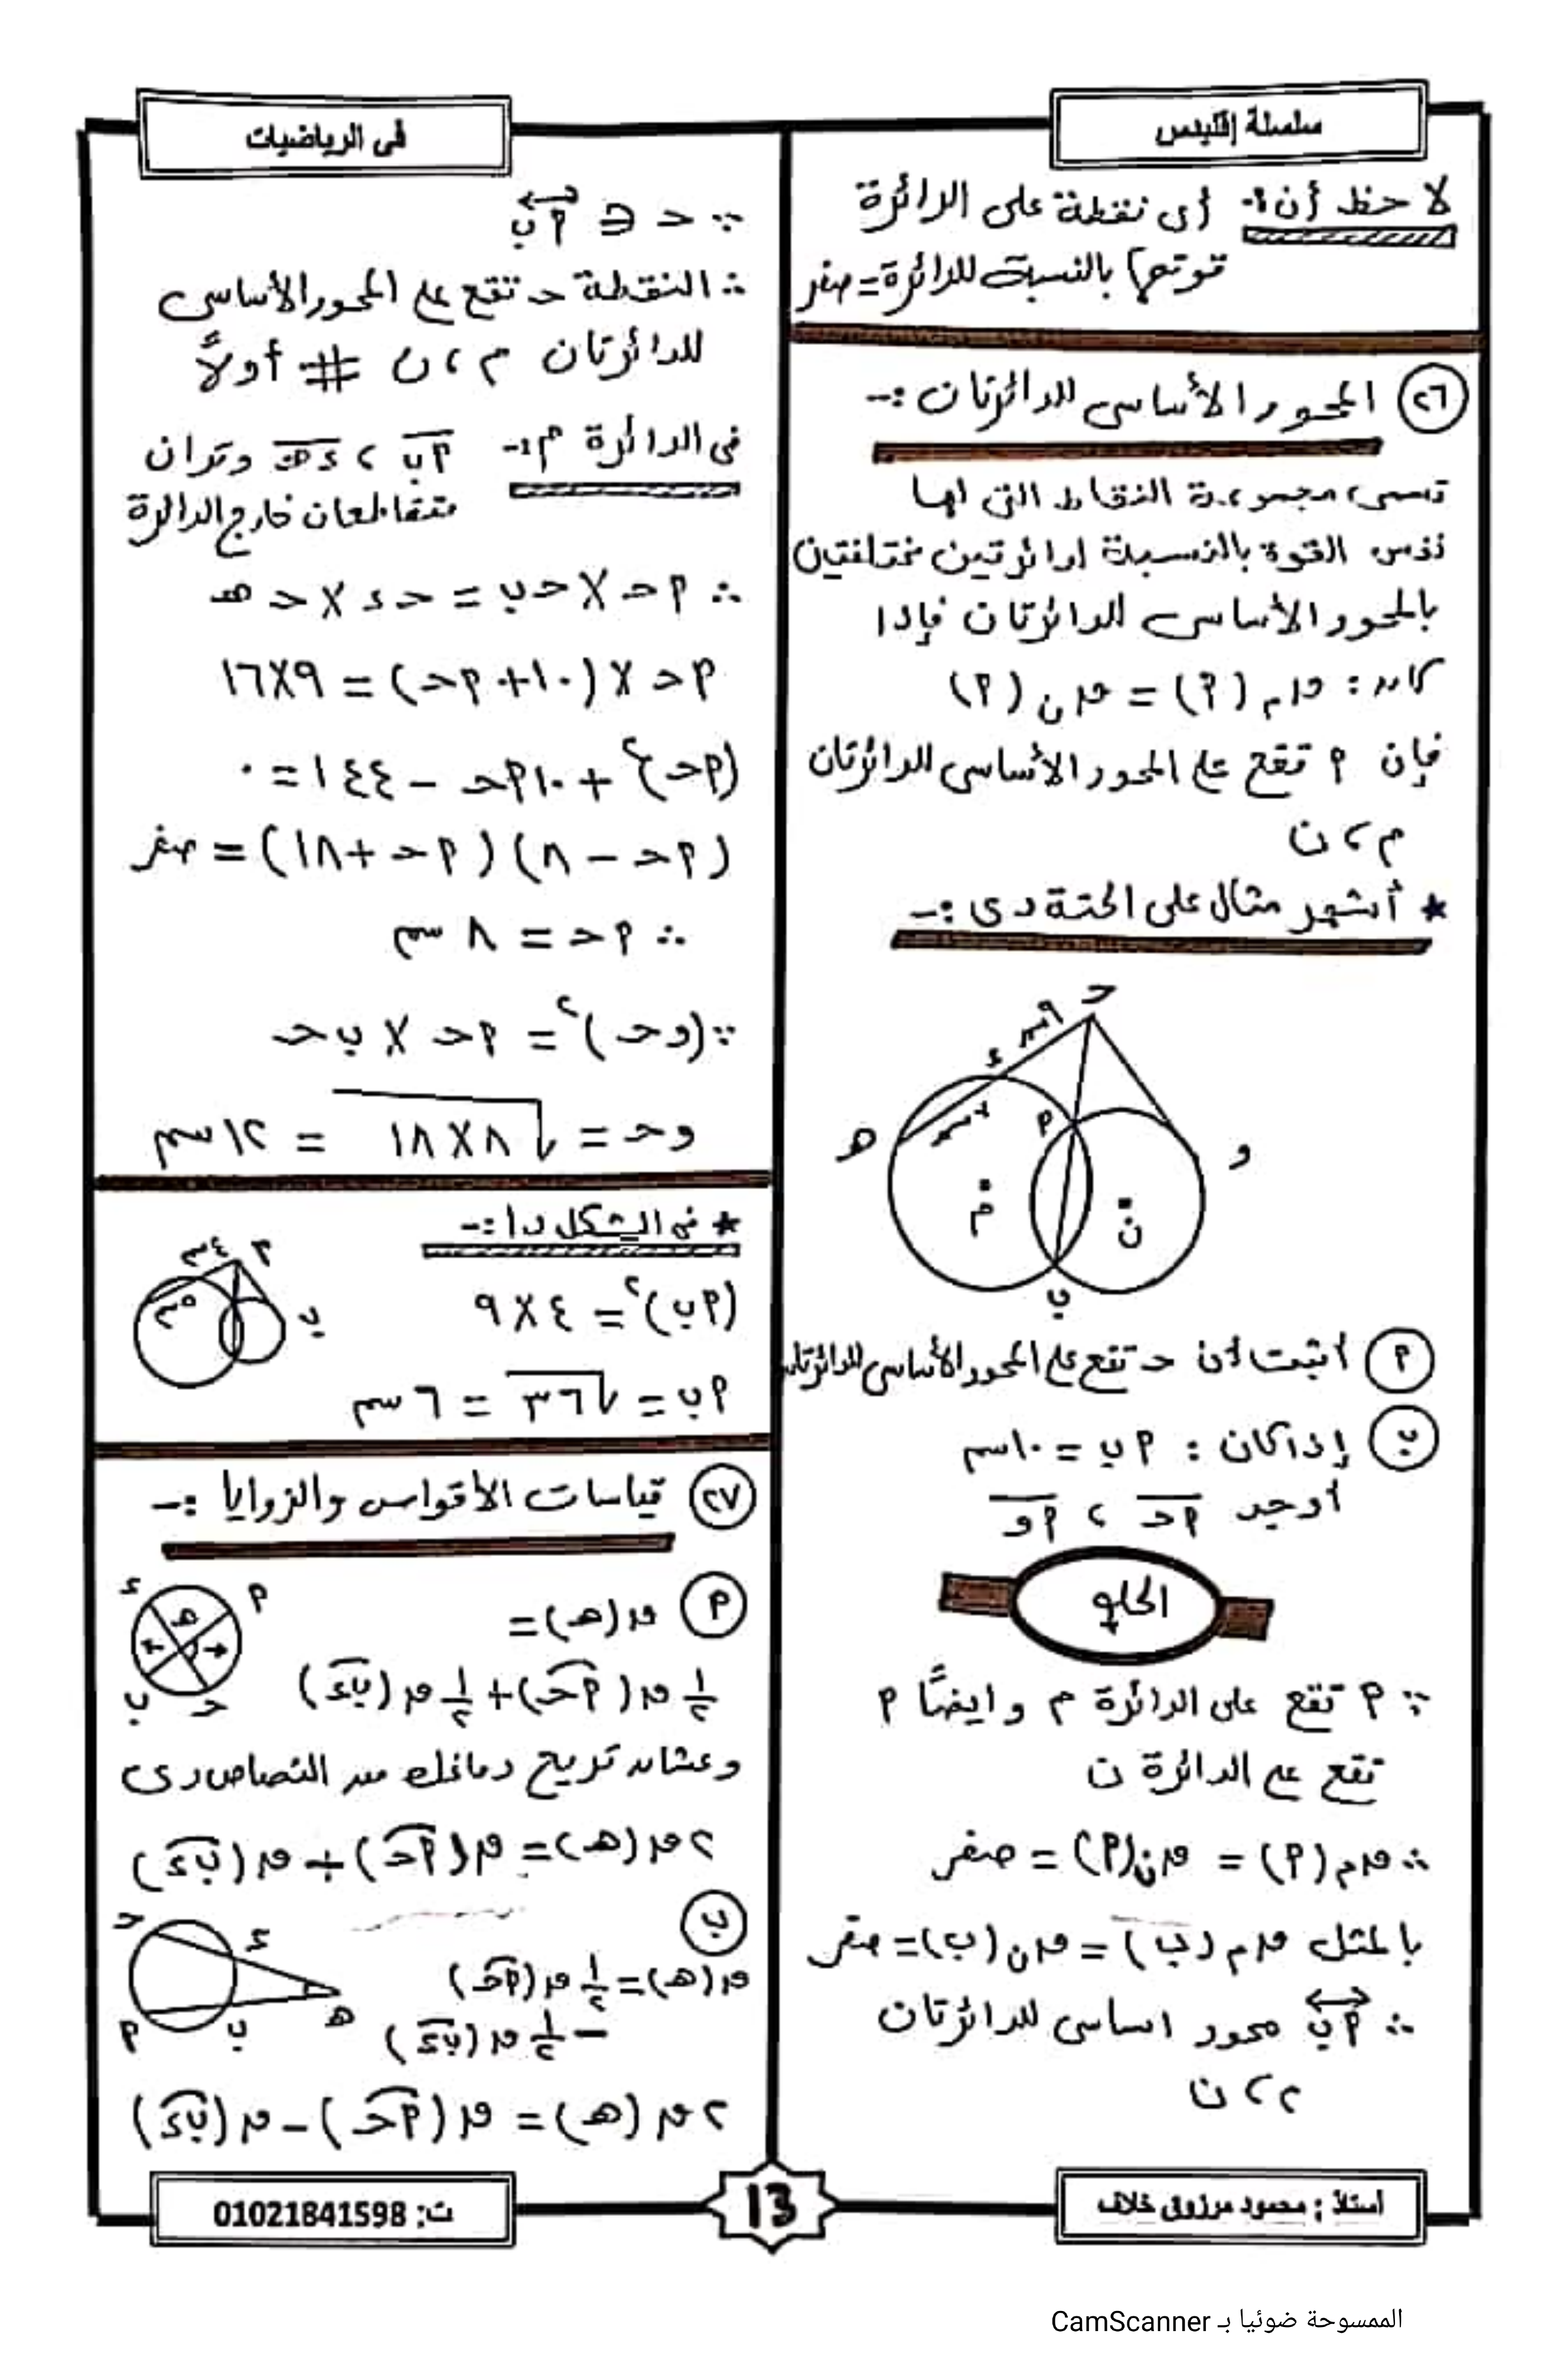 سلسلة إقليدس
فى الرياضيات
لاحظ أن :- أى نقطة على الدائرة
قوتها بالنسبة للدائرة = صفر
٢٦ المحور الأساسى للدائرتان :-
تسمى مجموعة النقاط التى لها
نفس القوة بالنسبة لدائرتين مختلفتين
بالمحور الأساسى للدائرتان فإذا
كان : ق م (P) = ق ن (P)
فإن P تقع على المحور الأساسى للدائرتان
م ، ن
* أشهر مثال على الحتة دى :-
حـ
٩سم
ء
٧سم
P
هـ
و
م
ن
ب
P أثبت أن حـ تقع على المحور الأساسى للدائرتان
ب إذا كان : P ب = ١٠سم
أوجد P حـ ، P و
الحل
∵ P تقع على الدائرة م وايضًا P
تقع على الدائرة ن
∴ ق م (P) = ق ن (P) = صفر
بالمثل ق م (ب) = ق ن (ب) = صفر
∴ P ب محور اساسى للدائرتان
م ، ن
∵ حـ ∈ P ب
∴ النقطة حـ تقع على المحور الأساسى
للدائرتان م ، ن # أولاً
فى الدائرة م :- P ب ، ء هـ وتران
متقاطعان خارج الدائرة
∴ P حـ × حـ ب = حـ ء × حـ هـ
P حـ × (١٠ + P حـ) = ٩×١٦
(P حـ)٢ + ١٠ P حـ − ١٤٤ = ٠
(P حـ − ٨) (P حـ + ١٨) = صفر
∴ P حـ = ٨ سم
∵ (و حـ)٢ = P حـ × ب حـ
و حـ = √٨×١٨ = ١٢سم
* فى الشكل دا :-
٤سم
P
٥سم
ب
(P ب)٢ = ٤ × ٩
P ب = √٣٦ = ٦ سم
٢٧ قياسات الأقواس والزوايا :-
P ق (هـ) =
ء
P
هـ
ب
حـ
١/٢ ق (P حـ) + ١/٢ ق (ب ء)
وعشان تريح دماغك من النصاص دى
٢ ق (هـ) = ق (P حـ) + ق (ب ء)
ب
حـ
ء
P
ب
هـ
ق (هـ) = ١/٢ ق (P حـ)
− ١/٢ ق (ب ء)
٢ ق (هـ) = ق (P حـ) − ق (ب ء)
أستاذ : محمود مرزوق خلاف
13
ت: 01021841598
الممسوحة ضوئيا بـ CamScanner